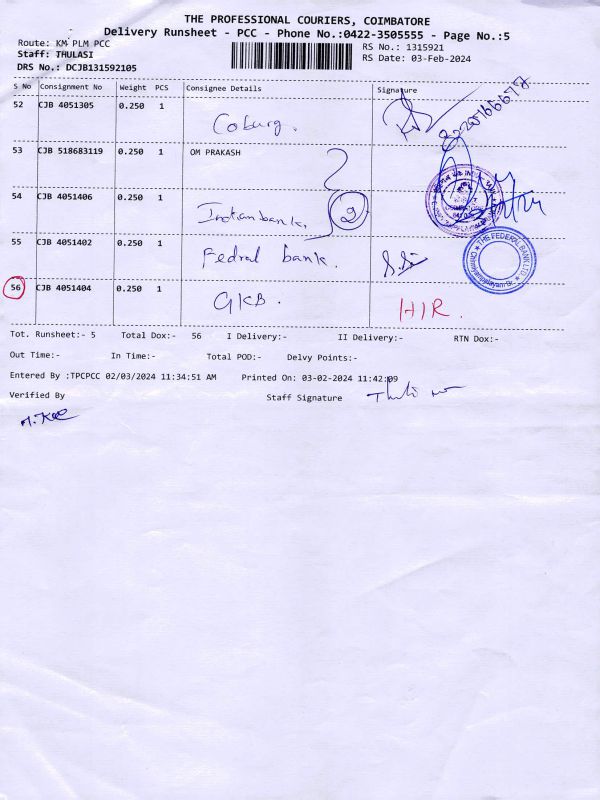 THE PROFESSIONAL COURIERS, COIMBATORE
Delivery Runsheet - PCC - Phone No.:0422-3505555 - Page No.:5
Route: KM PLM PCC
RS No.: 1315921
Staff: THULASI
RS Date: 03-Feb-2024
DRS No.: DCJB131592105
S No Consignment No Weight PCS Consignee Details Signature
52 CJB 4051305 0.250 1 Coburg.
53 CJB 518683119 0.250 1 OM PRAKASH
54 CJB 4051406 0.250 1 Indianbank. 2
55 CJB 4051402 0.250 1 Fedral bank.
THE FEDERAL BANK LTD.
56 CJB 4051404 0.250 1 GKB. HIR.
Tot. Runsheet:- 5 Total Dox:- 56 I Delivery:- II Delivery:- RTN Dox:-
Out Time:- In Time:- Total POD:- Delvy Points:-
Entered By :TPCPCC 02/03/2024 11:34:51 AM Printed On: 03-02-2024 11:42:09
Verified By Staff Signature